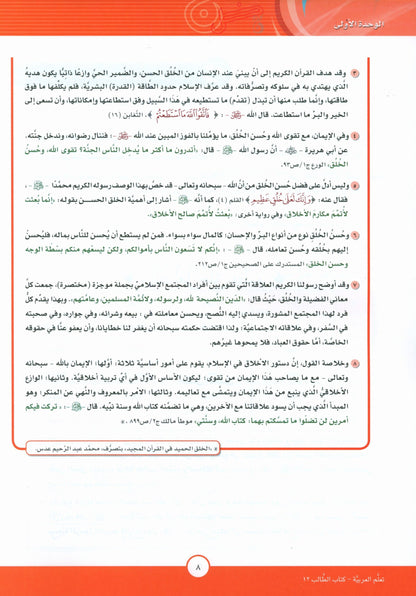 الوحدة الأولى
٣ وقد هدف القرآن الكريم إلى أنْ يبنيَ عندَ الإنسان من الخُلُق الحسن، والضمير الحيِّ وازعًا ذاتيًّا يكون هديهُ
الذي يهتدي به في سلوكه وتصرُّفاته. وقد عرَّف الإسلام حدود الطَّاقة (القدرة) البشريَّة، فلم يكلِّفها ما فوق
طاقتها، وإنَّما طلب منها أن تبذل (تقدِّم) ما تستطيعه في هَذَا السَّبيل وفق استطاعتها وإمكاناتها، وأن تسعى إلى
الخير والبرِّ ما استطاعت. قال اللّٰه - -: ﴿فَاتَّقُوا اللَّهَ مَا اسْتَطَعْتُمْ﴾. (التَّغابن ١٦)
٤ وفي الإيمان، مع تقوى اللّٰه وحُسن الخُلق، ما يؤمِّلنا بالفوز المبين عند اللّٰه - -؛ فننال رضوانه، وندخل جنَّته.
عن أبي هريرة - - أنَّ رسول اللّٰه - - قال: «أتدرون ما أكثر ما يُدخِل النَّاسَ الجنَّة؟ تقوى اللّٰه، وحُسن
الخُلق». الورع ج١/ص٩٣.
٥ وليس أدلّ على فضل حُسن الخلق من أنَّ اللّٰه - سبحانه وتعالى - قد خصَّ بهذا الوصف رسوله الكريم محمَّدًا - -،
فقال عنه: ﴿وَإِنَّكَ لَعَلَىٰ خُلُقٍ عَظِيمٍ﴾ القلم (٤)، كما أنَّه - - أشار إلى أهميَّة الخُلق الحســن بقوله: «إنَّما بُعثت
لأتمِّم مكارمَ الأخلاق»، وفي رواية أخرى: «بُعثتُ لأُتمِّم صالح الأخلاق».
٦ وحُسنُ الخُلق نوع من أنواع البرِّ والإحسان؛ كالمال سواء بسواء. فمن لم يستطع أن يُحسن للنَّاس بماله، فليُحسنْ
إليهم بخلُقه وحُسن تعامله، قال - -: «إنَّكم لا تسعون النَّاس بأموالكم، ولكن ليسعهم منكم بَسْطة الوجه
وحسن الخلق». المستدرك على الصحيحين ج١/ص٢١٢.
٧ وقد أوضح رسولنا الكريم العلاقة الَّتي تقوم بين أفراد المجتمع الإسلاميّ بجملة موجزة (مختصرة)، جمعت كلَّ
معاني الفضيلة والخُلُق، حَيْثُ قال: «الدِّين النَّصيحة للّٰه، ولرسوله، ولأئمَّة المسلمين، وعامَّتهم». وبهذا يقدِّم كلُّ
فرد لهذا المجتمع المشورة، ويسدي إليه النُّصح، ويحسن معاملته في : بيعه وشرائه، وفي جواره، وفي صحبته
في السَّفر، وفي علاقاته الاجتماعيَّة؛ ولذا اقتضت حكمته سبحانه أن يغفر لنا خطايانا، وأن يعفوَ عنَّا في حقوقه
الخاصَّة، أمَّا حقوق العباد، فلا يمحوها غيرهم.
٨ وخلاصة القول، إنَّ دستور الأخلاق في الإسلام، يقوم على أمور أساسيَّة ثلاثة: أوّلها: الإيمان باللّٰه - سبحانه
وتعالى - مع ما يصاحب هَذَا الإيمان من تقوى؛ ليكون الأساس الأوَّل في أيِّ تربية أخلاقيَّة. وثانيها: الوازع
الأخلاقيُّ الَّذي ينبع من هَذَا الإيمان ويتمشَّى مع تعاليمه. وثالثها: الأمر بالمعروف والنَّهي عن المنكر؛ وهو
المبدأ الَّذي يجب أن يسود علاقاتنا مع الآخرين، وهي ما تضمنُه كتاب اللّٰه وسنة نبيِّه. قال - -: «تركت فيكم
أمرين لن تضلُّوا ما تمسكتم بهما: كتاب اللّٰه، وسنَّتي». موطأ مالك ج٢/ص٨٩٩.
* «الخلق الحميد في القرآن المجيد»، بتصرُّف، محمَّد عبد الرَّحيم عدس.
٨
تعلُّم العربيَّة - كتاب الطَّالب ١٢